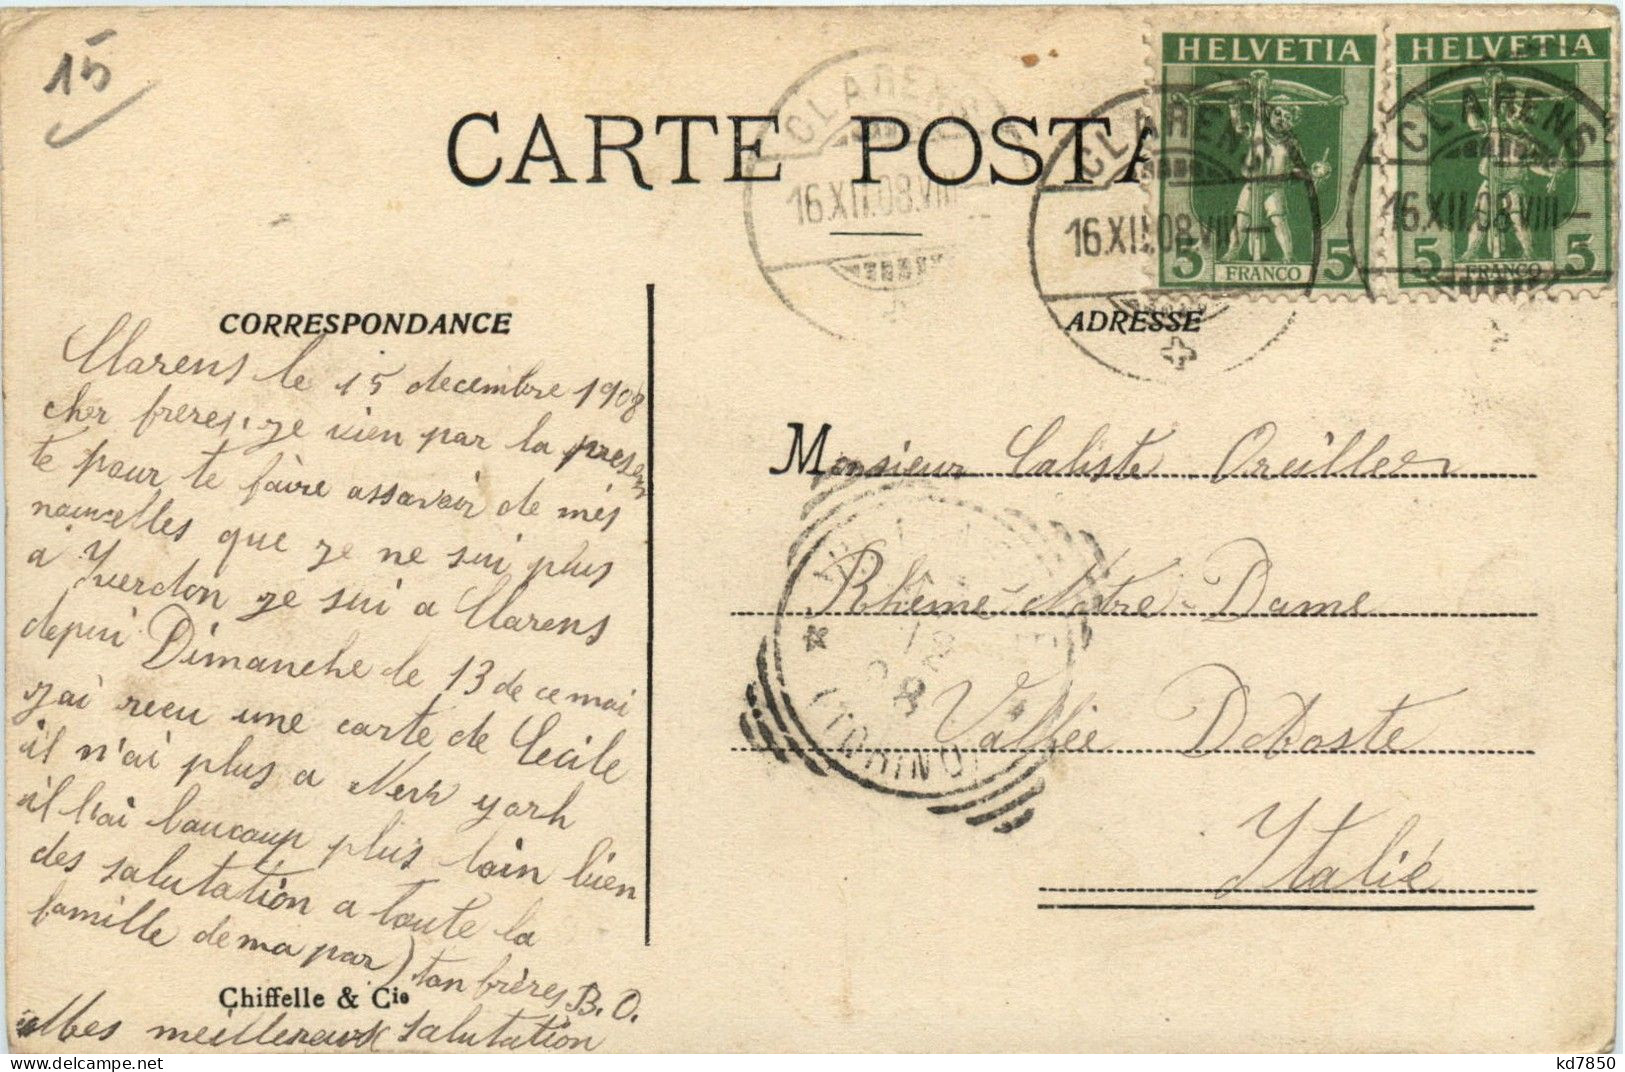 15
CARTE POSTA
HELVETIA HELVETIA
5 FRANCO 5 5 FRANCO 5
CLARENS
16.XII.08.VIII-
CLARENS
16.XII.08.VIII-
CLARENS
16.XII.08.VIII-
CORRESPONDANCE
Clarens le 15 decembre 1908
cher freres, je vien par la presen
te pour te faire assavoir de mes
nouvelles que je ne sui plus
a Yverdon je sui a Clarens
depui Dimanche le 13 de ce mai
j'ai recu une carte de Cecile
il n'ai plus a New york
il l'ai baucoup plus loin bien
des salutation a toute la
famille de ma par) ton frères B. O.
Mes meillereux salutation
Chiffelle & Cie
ADRESSE
Monsieur Caliste Oreiller
Rhême-Notre-Dame
Vallée Dahoste
Italié
12
08
(TORINO)
kd7850